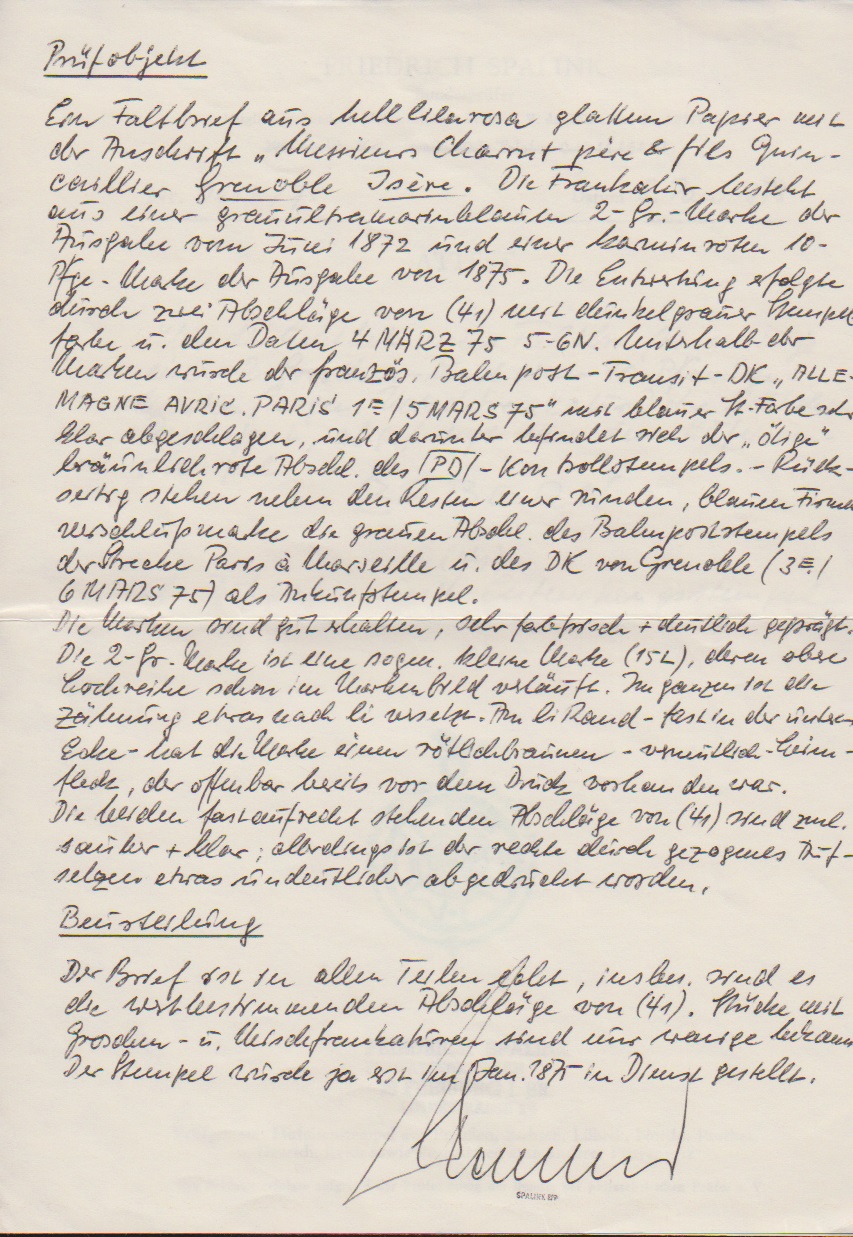 Prüfobjekt
Ein Faltbrief aus helllilarosa glattem Papier mit
der Anschrift „Messieurs Charrut père & fils Quin-
caillier Grenoble Isère. Die Frankatur besteht
aus einer grauultramarinblauen 2-Gr.-Marke der
Ausgabe vom Juni 1872 und einer karminroten 10-
Pfge-Marke der Ausgabe von 1875. Die Entwertung erfolgte
durch zwei Abschläge von (41) mit dunkelgrauer Stempel
farbe u. den Daten 4 MÄRZ 75 5-6N. Unterhalb der
Marken wurde der französ. Bahnpost-Transit-DK „ALLE-
MAGNE AVRIC. PARIS 1E/5 MARS 75" mit blauer St-Farbe sehr
klar abgeschlagen, und darunter befindet sich der „ölige"
bräunlichrote Abschl. des PD-Kontrollstempels. - Rück-
seitig stehen neben den Resten einer runden, blauen Firmen
verschlußmarke die grauen Abschl. des Bahnpoststempels
der Strecke Paris à Marseille u. des DK von Grenoble (3E/
6 MARS 75) als Ankunftstempel.
Die Marken sind gut erhalten, sehr farbfrisch + deutlich geprägt.
Die 2-Gr.-Marke ist eine sogen. kleine Marke (15L), deren obere
Lochreihe schon im Markenbild verläuft. Im ganzen ist die
Zähnung etwas nach li versetzt. Am li Rand - fast in der unteren
Ecke - hat die Marke einen rötlichbraunen - vermutlich - Leim-
fleck, der offenbar bereits vor dem Druck vorhanden war.
Die beiden fast aufrecht stehenden Abschläge von (41) sind zml.
sauber + klar; allerdings ist der rechte durch gezogenes Auf-
setzen etwas undeutlicher abgedruckt worden.
Beurteilung
Der Brief ist in allen Teilen echt, insbes. sind es
die wertbestimmenden Abschläge von (41). Stücke mit
Groschen- u. Mischfrankaturen sind nur wenige bekannt
Der Stempel wurde ja erst im Jan. 1875 in Dienst gestellt.
SPALINK BPP